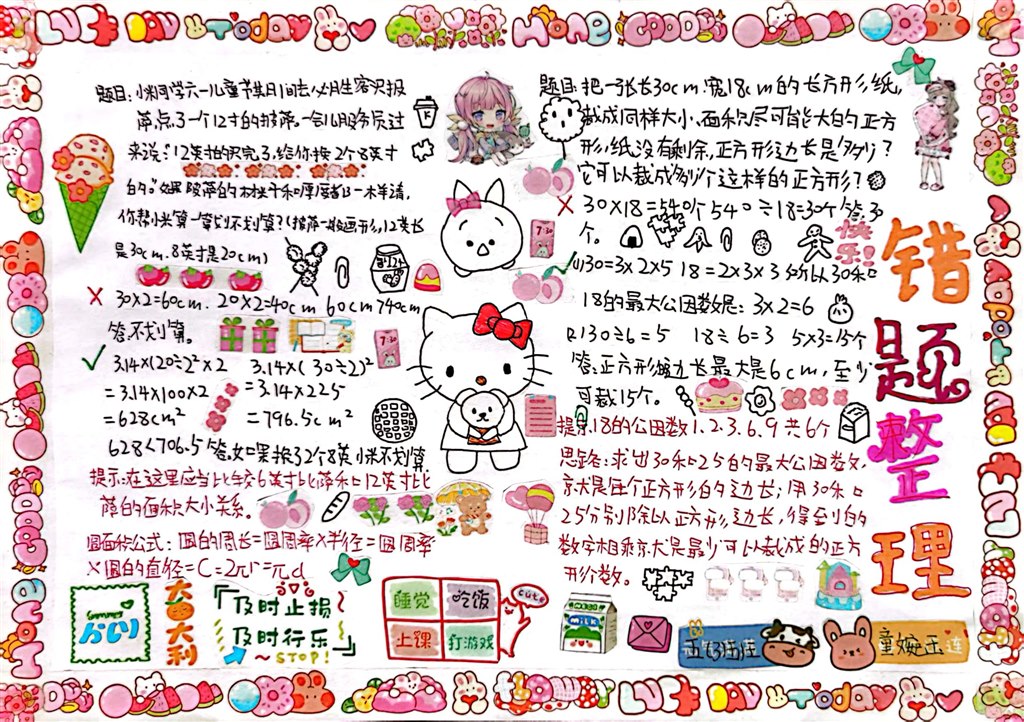 错题整理
题目:小米同学六一儿童节其月间去必月生客识报
萨点了一个12寸的披萨。一会儿服务员过
来说:“12英寸的没完了,给你换2个8英寸
的。”如果披萨的材米斗和厚度者阝一样请
你帮小米算一算划不划算?(披萨一般画形,12英长
是30cm.8英寸是20cm)
× 30×2=60cm. 20×2=40cm 60cm>40cm
答:不划算。
✓ 3.14×(20÷2)²×2 3.14×(30÷2)²
=3.14×100×2 =3.14×225
=628cm² =796.5cm²
628<706.5 答:如果换32个8英小米不划算
提示:在这里应当比较6英寸比萨和12英寸比
萨的面积大小关系。
圆面积公式:圆的周长=圆周率×半径=圆周率
×圆的直径=C=2πr=πd
题目:把一张长30cm.宽18cm的长方形纸,
裁成同样大小,面积尽可能大的正方
形,纸没有剩余,正方形边长是多少?
它可以裁成多少个这样的正方形?
× 30×18=540个 540÷18=30个 答:30
个。
快乐!
30=3×2×5 18=2×3×3 所以30和
18的最大公因数是:3×2=6
30÷6=5 18÷6=3 5×3=15个
答:正方形边长最大是6cm,至少
可裁15个。
提示:18的公因数1.2.3.6.9共6个
思路:求出30和25的最大公因数,
就是每个正方形的边长;用30和
25分别除以正方形边长,得到的
数字相乘就是最少可以裁成的正方
形个数。
summer
大吉大利
「及时止损
及时行乐」
~STOP!
睡觉 吃饭
上课 打游戏
cute
MILK
7:30
7:30
LUCK DAY Today
Home GOOD
LUCK DAY Today